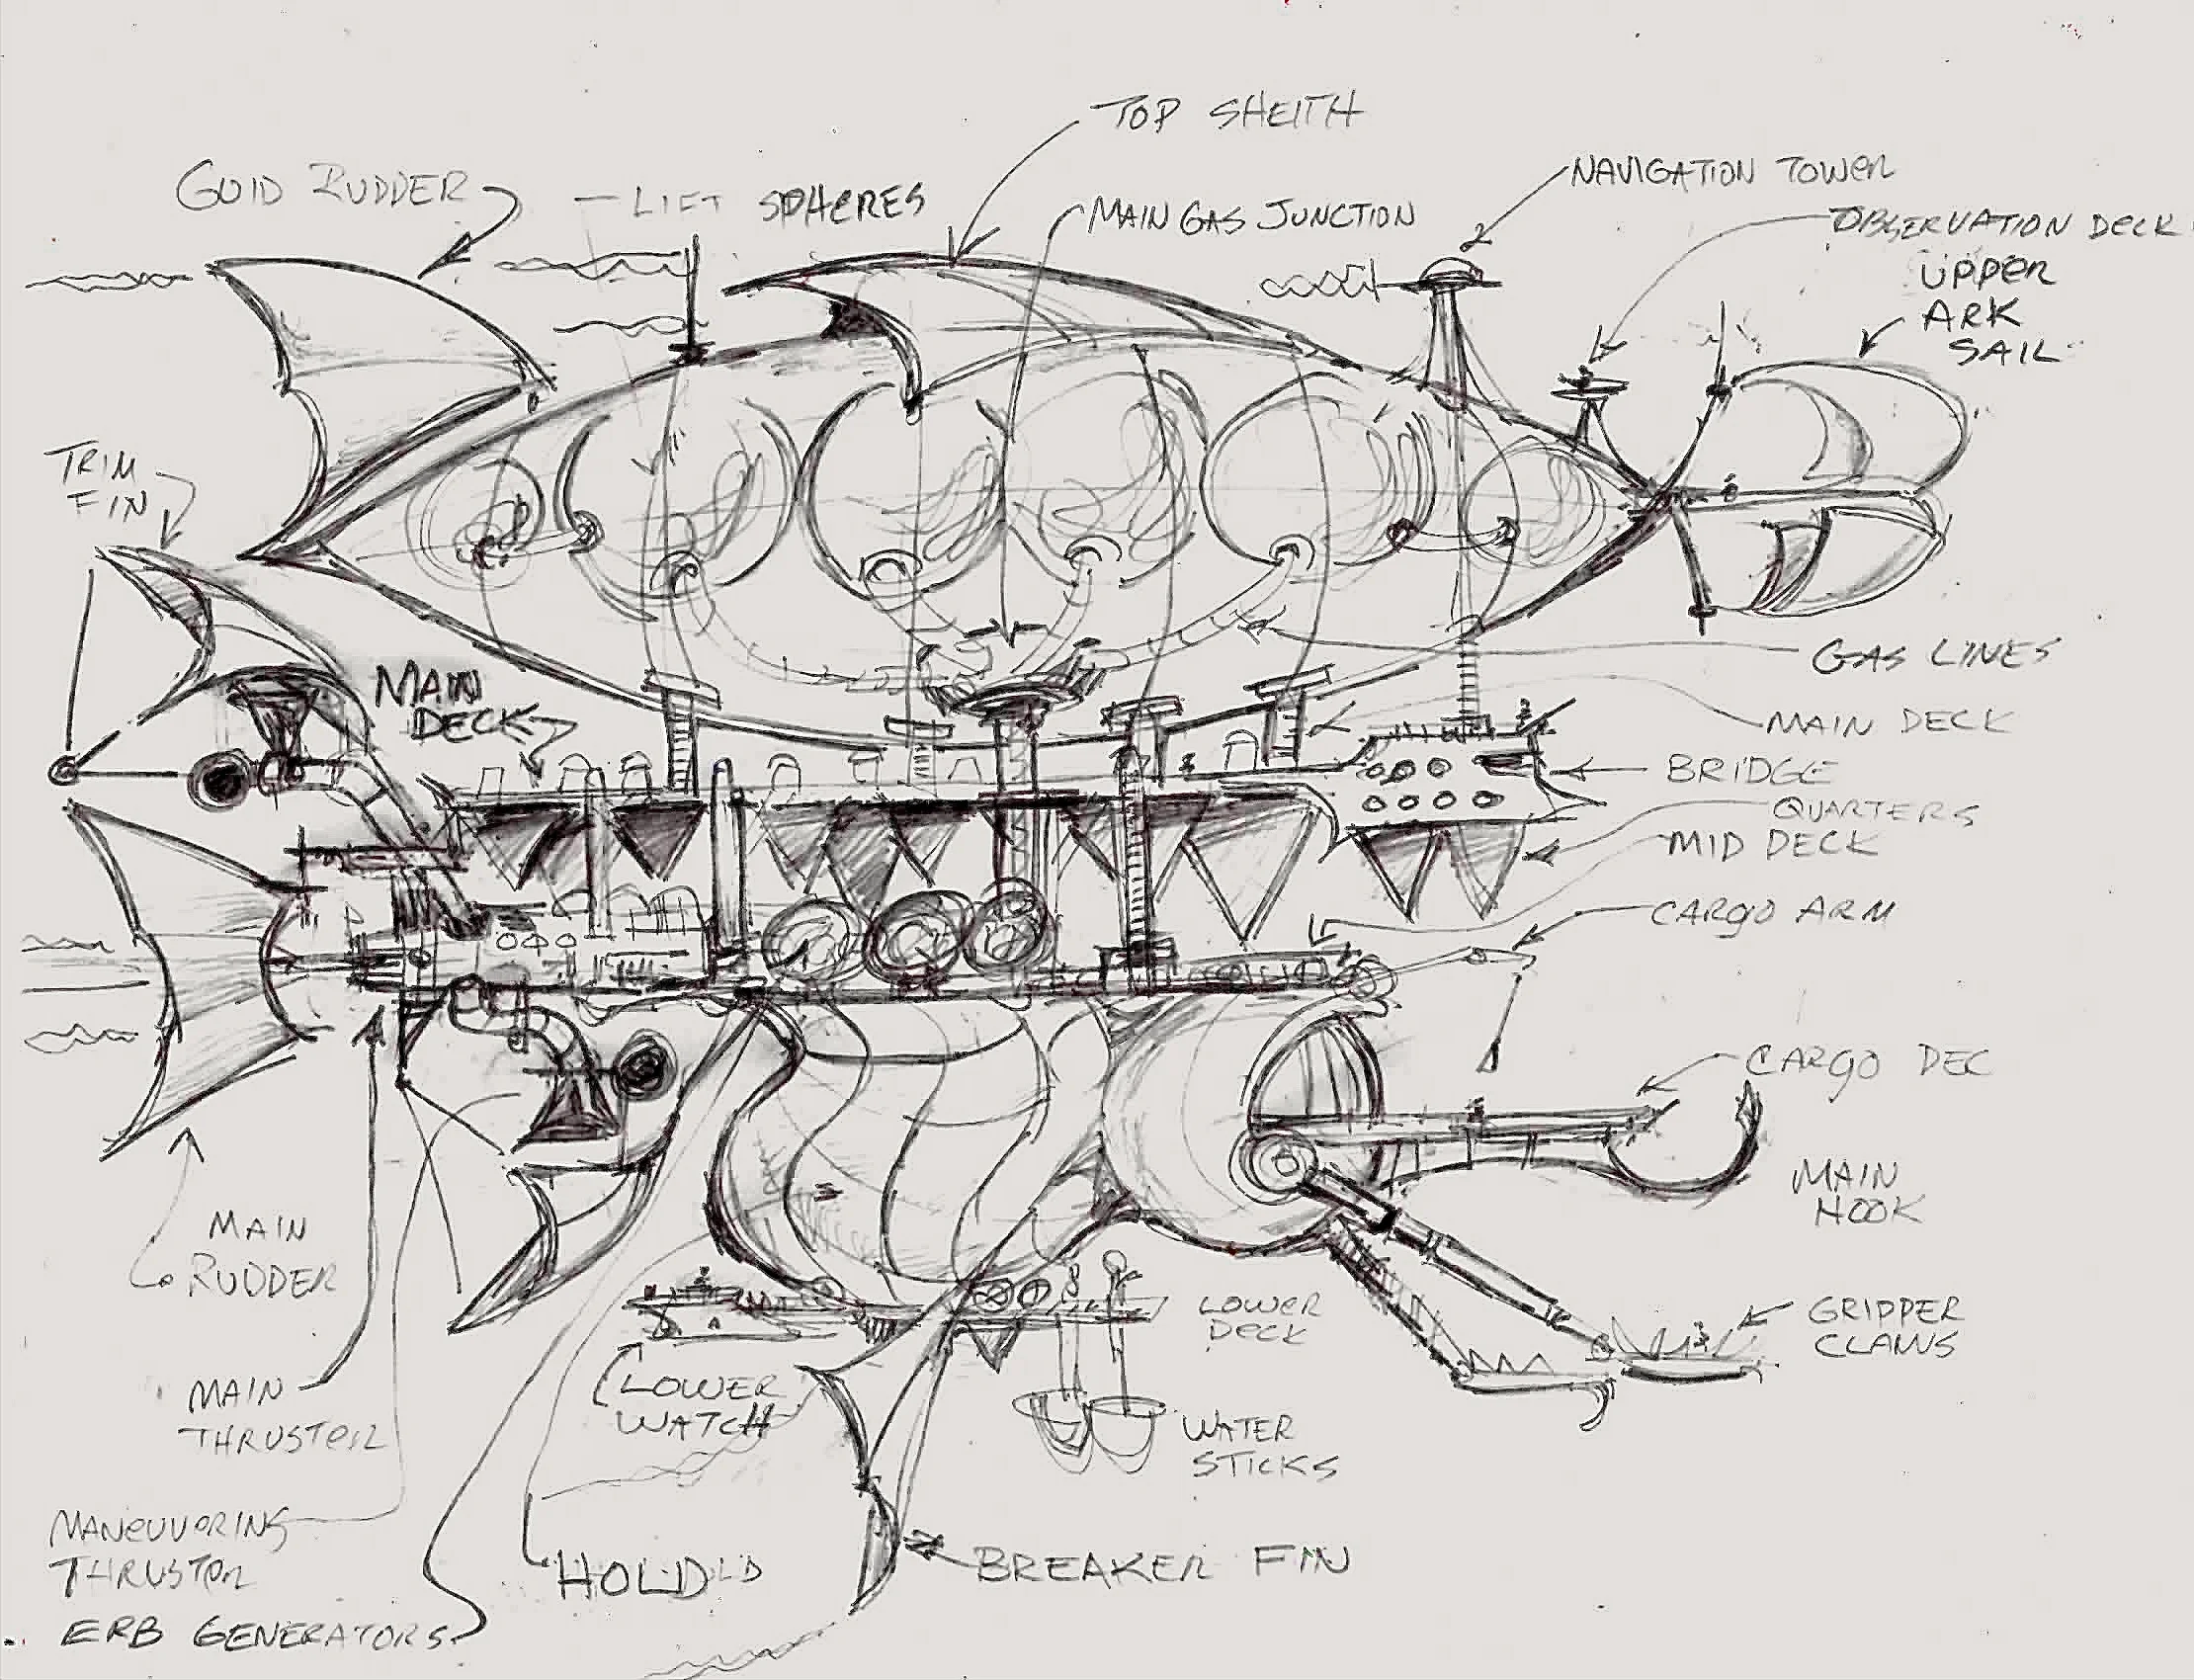 TOP SHEITH
GUID RUDDER
LIFT SPHERES
MAIN GAS JUNCTION
NAVIGATION TOWER
OBSERVATION DECK
UPPER
ARK
SAIL
TRIM
FIN
GAS LINES
MAIN
DECK
MAIN DECK
BRIDGE
QUARTERS
MID DECK
CARGO ARM
CARGO DEC
MAIN
HOOK
MAIN
RUDDER
LOWER
DECK
GRIPPER
CLAWS
MAIN
THRUSTER
LOWER
WATCH
WATER
STICKS
MANEUVORING
THRUSTER
HOLD
BREAKER FIN
ERB GENERATORS